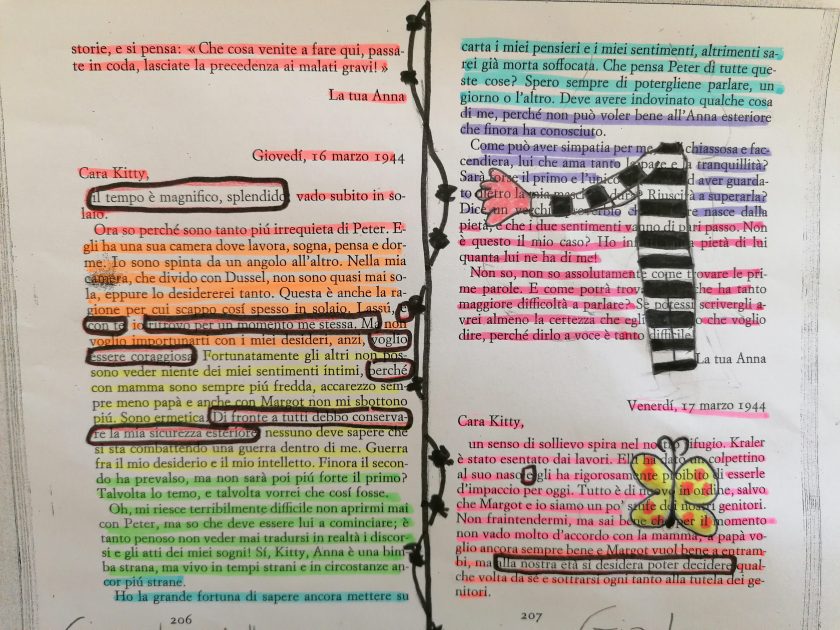 storie, e si pensa: « Che cosa venite a fare qui, passa-
te in coda, lasciate la precedenza ai malati gravi! »
La tua Anna
Giovedí, 16 marzo 1944
Cara Kitty,
il tempo è magnifico, splendido, vado subito in so-
laio.
Ora so perché sono tanto piú irrequieta di Peter. E-
gli ha una sua camera dove lavora, sogna, pensa e dor-
me. Io sono spinta da un angolo all'altro. Nella mia
camera, che divido con Dussel, non sono quasi mai so-
la, eppure lo desidererei tanto. Questa è anche la ra-
gione per cui scappo cosí spesso in solaio. Lassú, e
con te, io ritrovo per un momento me stessa. Ma non
voglio importunarti con i miei desideri, anzi, voglio
essere coraggiosa. Fortunatamente gli altri non pos-
sono veder niente dei miei sentimenti intimi, perché
con mamma sono sempre piú fredda, accarezzo sem-
pre meno papà e anche con Margot non mi sbottono
piú. Sono ermetica. Di fronte a tutti debbo conserva-
re la mia sicurezza esteriore, nessuno deve sapere che
si sta combattendo una guerra dentro di me. Guerra
fra il mio desiderio e il mio intelletto. Finora il secon-
do ha prevalso, ma non sarà poi piú forte il primo?
Talvolta lo temo, e talvolta vorrei che cosí fosse.
Oh, mi riesce terribilmente difficile non aprirmi mai
con Peter, ma so che deve essere lui a cominciare; è
tanto penoso non veder mai tradursi in realtà i discor-
si e gli atti dei miei sogni! Sí, Kitty, Anna è una bim-
ba strana, ma vivo in tempi strani e in circostanze an-
cor piú strane.
Ho la grande fortuna di sapere ancora mettere su
206
carta i miei pensieri e i miei sentimenti, altrimenti sa-
rei già morta soffocata. Che pensa Peter di tutte que-
ste cose? Spero sempre di potergliene parlare, un
giorno o l'altro. Deve avere indovinato qualche cosa
di me, perché non può voler bene all'Anna esteriore
che finora ha conosciuto.
Come può aver simpatia per me chiassosa e fac-
cendiera, lui che ama tanto la pace e la tranquillità?
Sarà forse il primo e l'unico ad aver guarda-
to dietro la mia Riuscirà a superarla?
Dice un vecchio proverbio che nasce dalla
pietà, e che i due sentimenti vanno di pari passo. Non
è questo il mio caso? Ho pietà di lui
quanta lui ne ha di me!
Non so, non so assolutamente come trovare le pri-
me parole. E come potrà che ha tanto
maggiore difficoltà a parlare? Se potessi scrivergli a-
vrei almeno la certezza che egli che voglio
dire, perché dirlo a voce è tanto difficile.
La tua Anna
Venerdí, 17 marzo 1944
Cara Kitty,
un senso di sollievo spira nel nostro rifugio. Kraler
è stato esentato dai lavori. Elli ha dato un colpettino
al suo naso e gli ha rigorosamente proibito di esserle
d'impaccio per oggi. Tutto è di nuovo in ordine, salvo
che Margot e io siamo un po' stufe dei nostri genitori.
Non fraintendermi, ma sai bene che per il momento
non vado molto d'accordo con la mamma, a papà vo-
glio ancora sempre bene e Margot vuol bene a entram-
bi, ma alla nostra età si desidera poter decidere qual-
che volta da sé e sottrarsi ogni tanto alla tutela dei ge-
nitori.
207